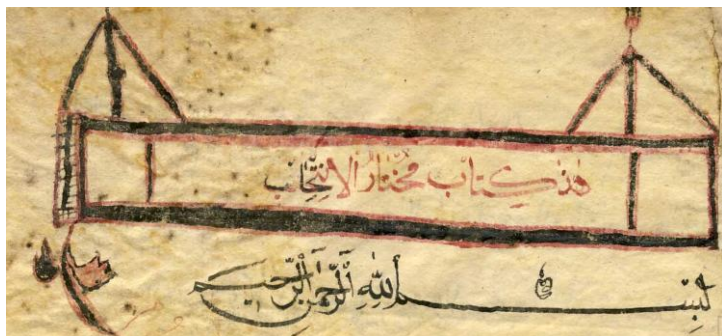 هذ كتاب مختار الانتخاب
بسم الله الرحمن الرحيم